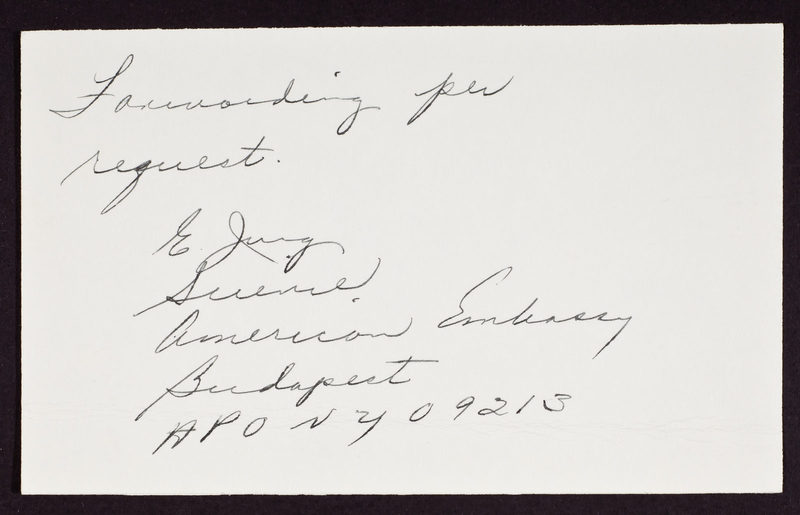 Forwarding per
request.
E. Jung
Science
American Embassy
Budapest
APO NY 09213